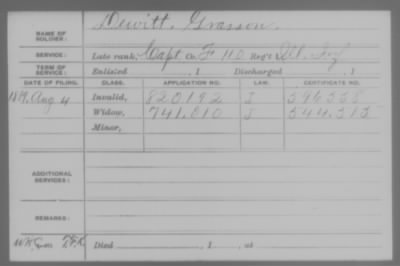 NAME OF SOLDIER: Dewitt, Grasson.
SERVICE: Late rank, Capt Co. F 110 Reg't Ill. Inf
TERM OF SERVICE: Enlisted , 1 Discharged , 1
DATE OF FILING. CLASS. APPLICATION NO. LAW. CERTIFICATE NO.
Aug 4 Invalid, 820192 J
Widow, 741.810 J 544.313
Minor,
ADDITIONAL SERVICES:
REMARKS:
Died , 1 , at